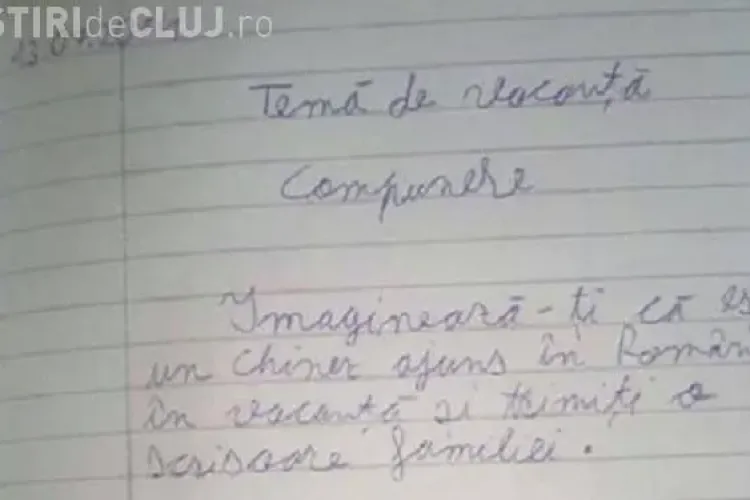 STIRIdeCLUJ.ro
Temă de vacanță
Compunere
Imaginează-ți că
un chinez ajuns în Român
în vacanță și trimiți o
scrisoare familiei.